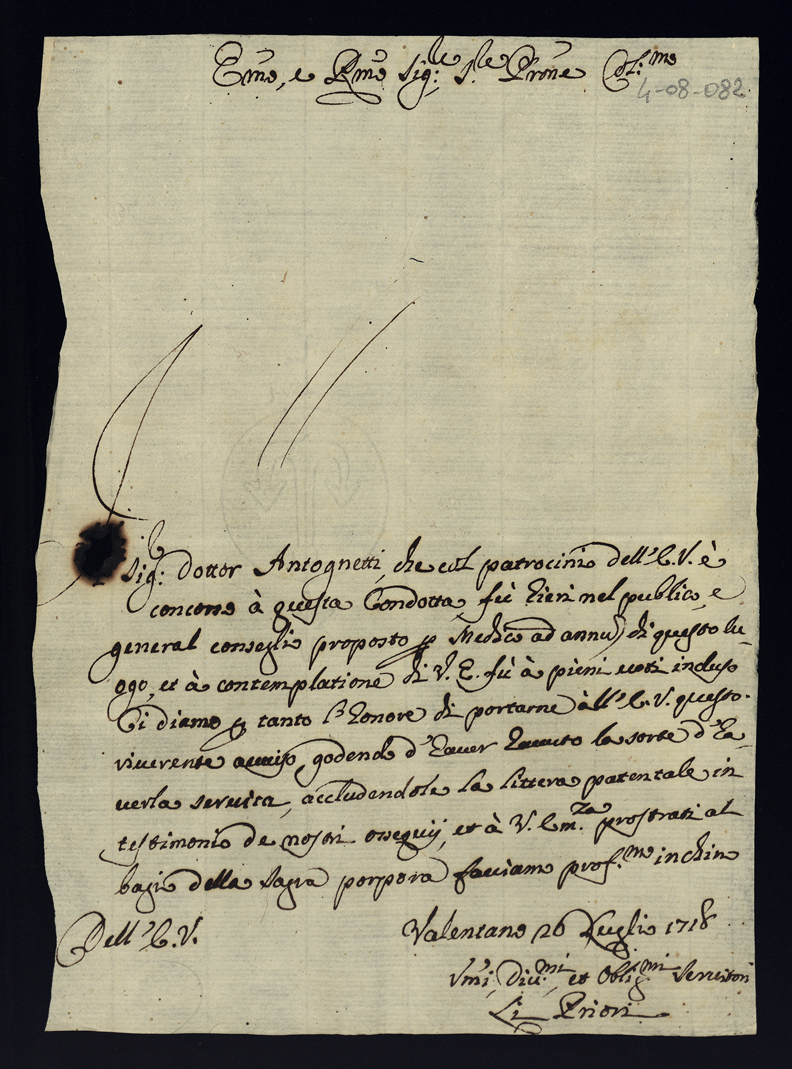 Em̃o, e Rm̃o Sig:re S.re Prōne Col:mo
4-08-082
Il Sig:re Dottor Antognetti, che col patrocinio dell'E.V. è
concorso à questa Condotta, fù hieri nel publico, e
general conseglio proposto p Medico ad annũ di questo lu-
ogo, et à contemplatione di V. E. fù à pieni voti incluso
Ci diamo p tanto l'honore di portarne all'E.V. questo
riverente avviso, godendo d'haver havuto la sorte d'ha-
verla servita, accludendole la littera patentale in
testimonio de nostri ossequij, et à V. Em.za prostrati al
bagio della sagra porpora facciamo prof.mo inchino
Dell'E.V.
Valentano 26 Luglio 1718
Vm̃i, Div:mi et Oblig:mi Servitori
Li Priori